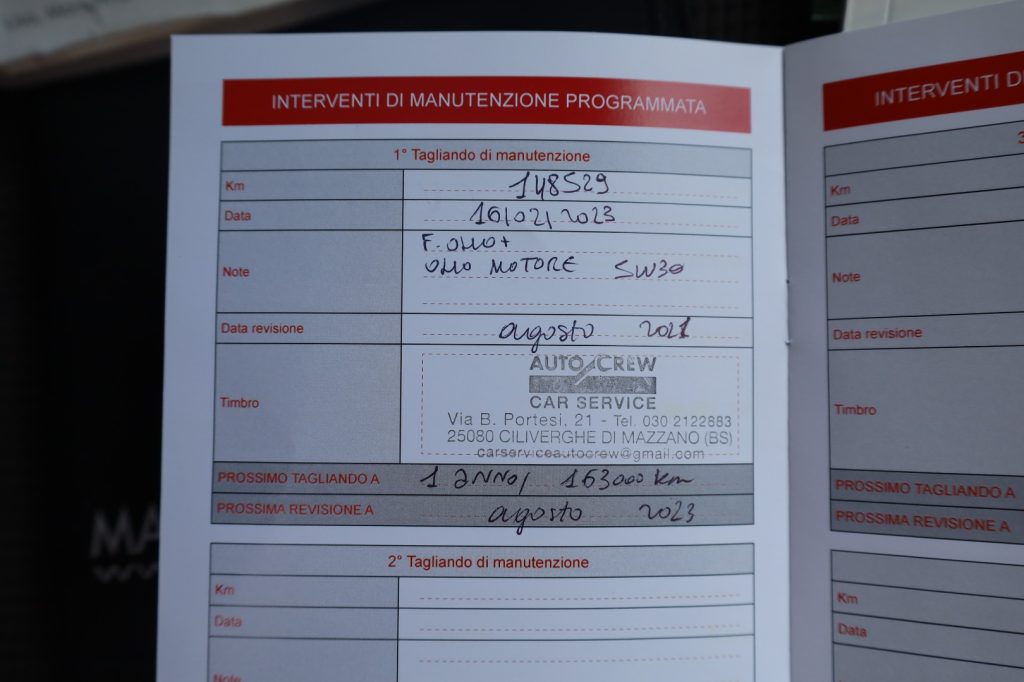 INTERVENTI DI MANUTENZIONE PROGRAMMATA
1° Tagliando di manutenzione
Km 148529
Data 16/02/2023
Note F. OLIO+
OLIO MOTORE 5W30
Data revisione agosto 2021
Timbro
AUTO CREW
CAR SERVICE
Via B. Portesi, 21 - Tel. 030 2122883
25080 CILIVERGHE DI MAZZANO (BS)
carserviceautocrew@gmail.com
PROSSIMO TAGLIANDO A 1 ANNO/ 163000 km
PROSSIMA REVISIONE A agosto 2023
2° Tagliando di manutenzione
Km
Data
Note
INTERVENTI D
3
Km
Data
Note
Data revisione
Timbro
PROSSIMO TAGLIANDO A
PROSSIMA REVISIONE A
Km
Data
MA